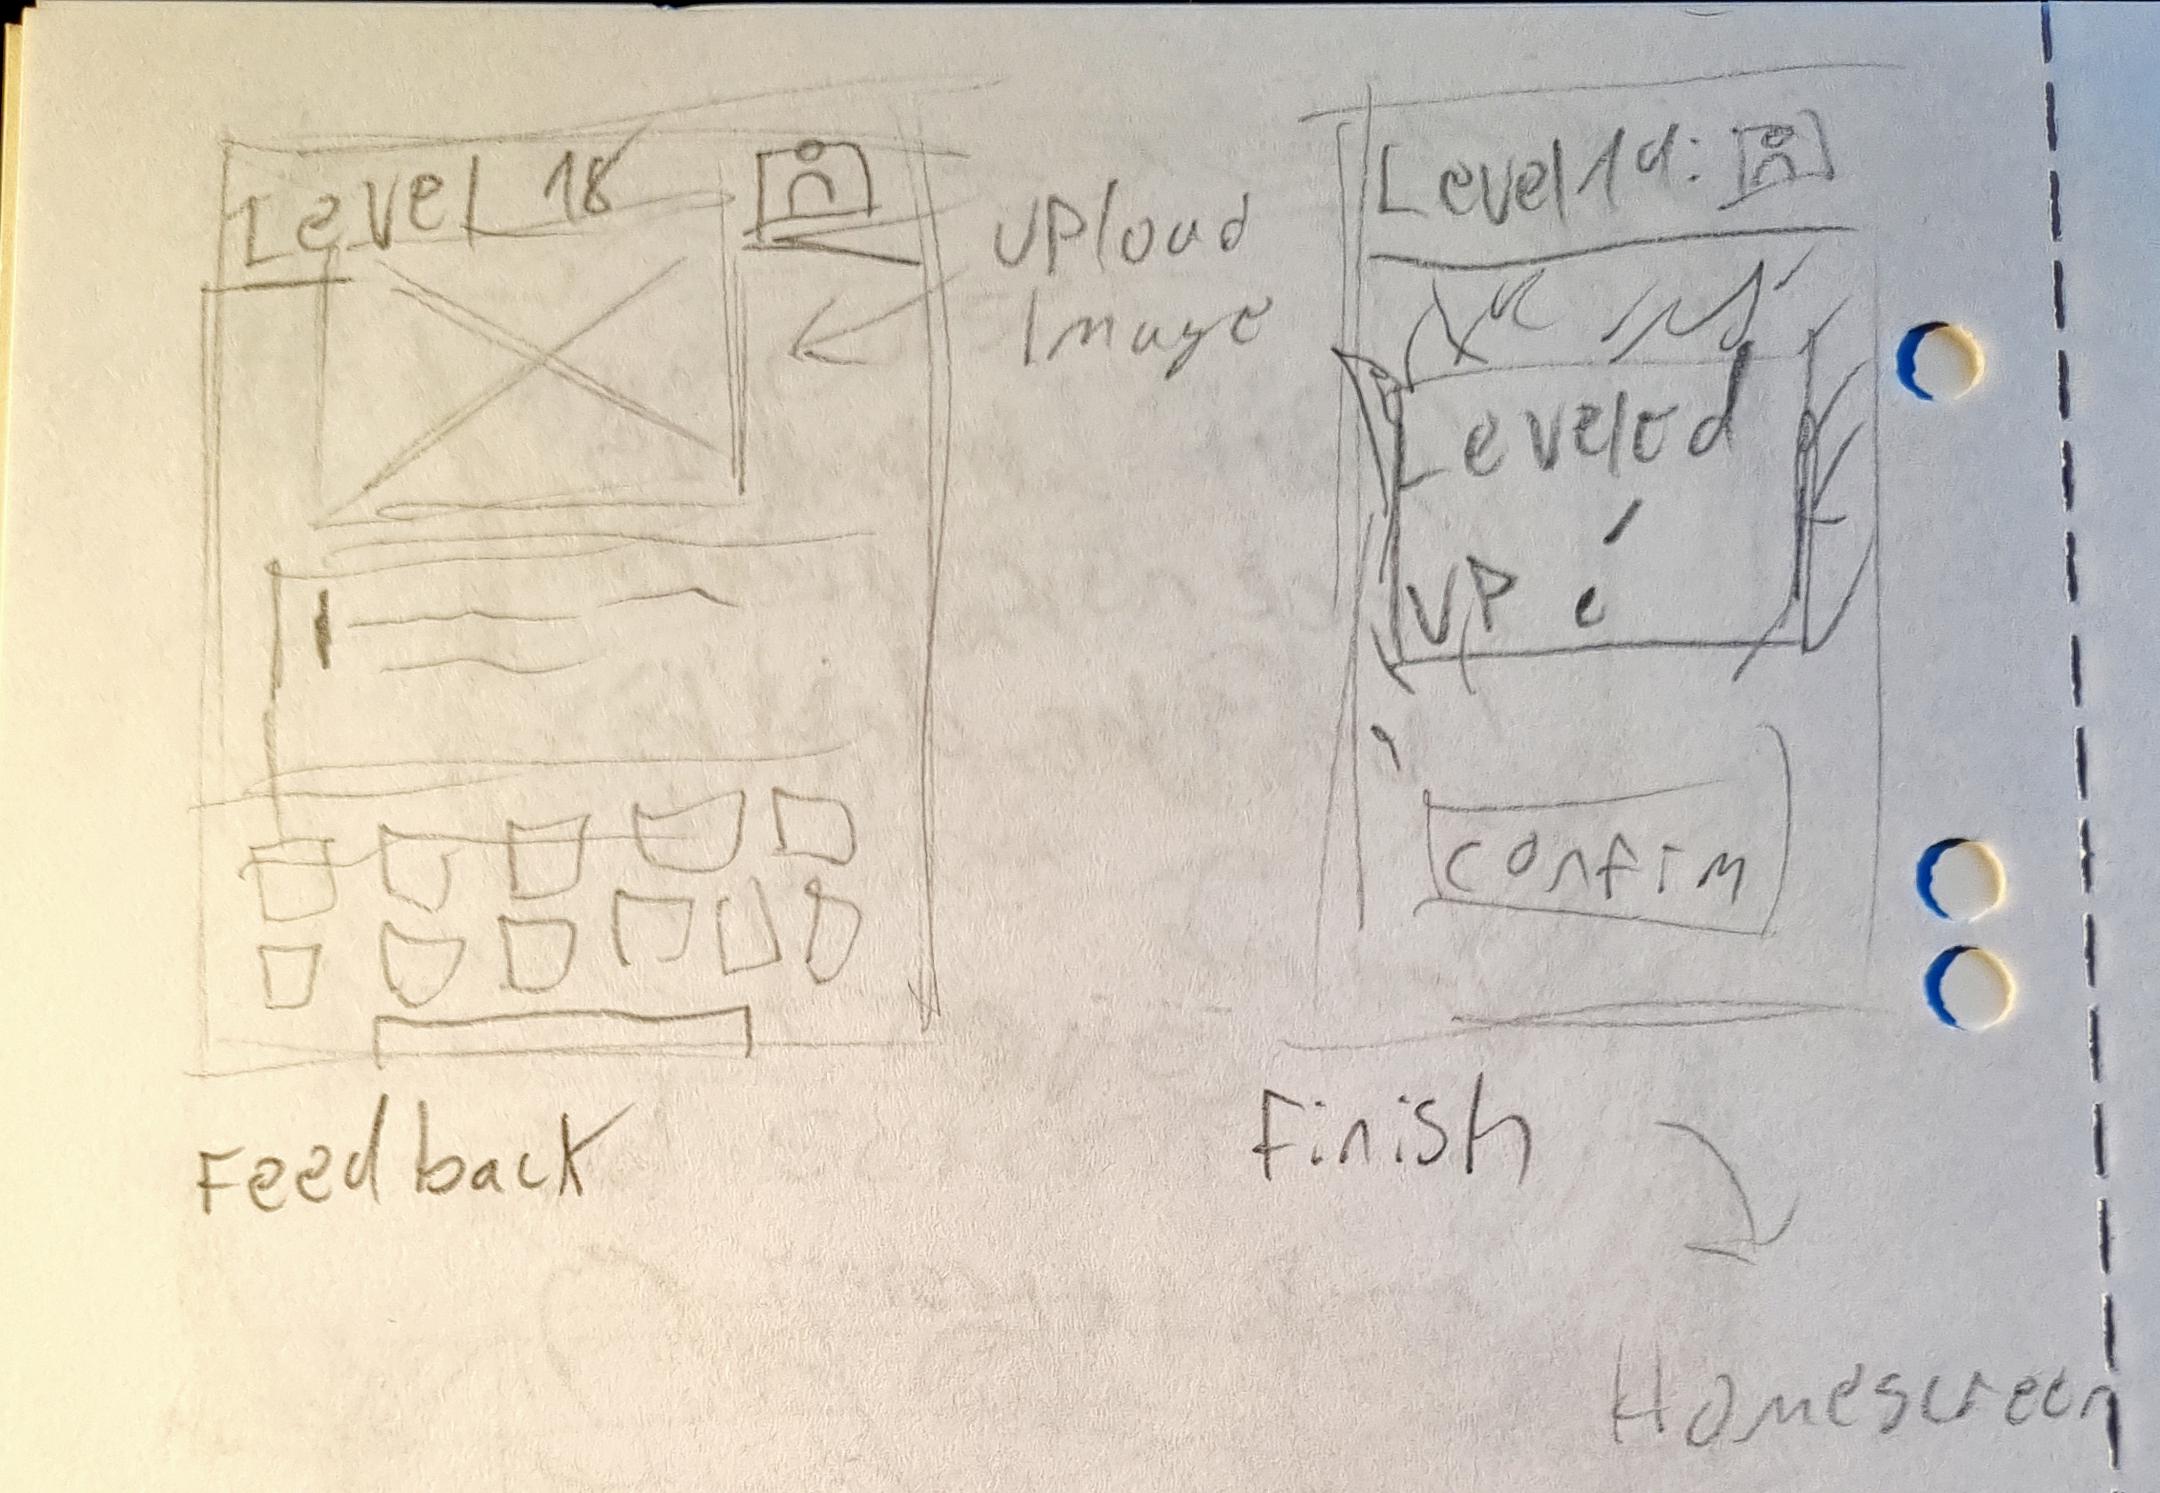 Level 18
Upload
Image
Feedback
Level 19:
Leveled
UP !
confirm
Finish
Homescreen